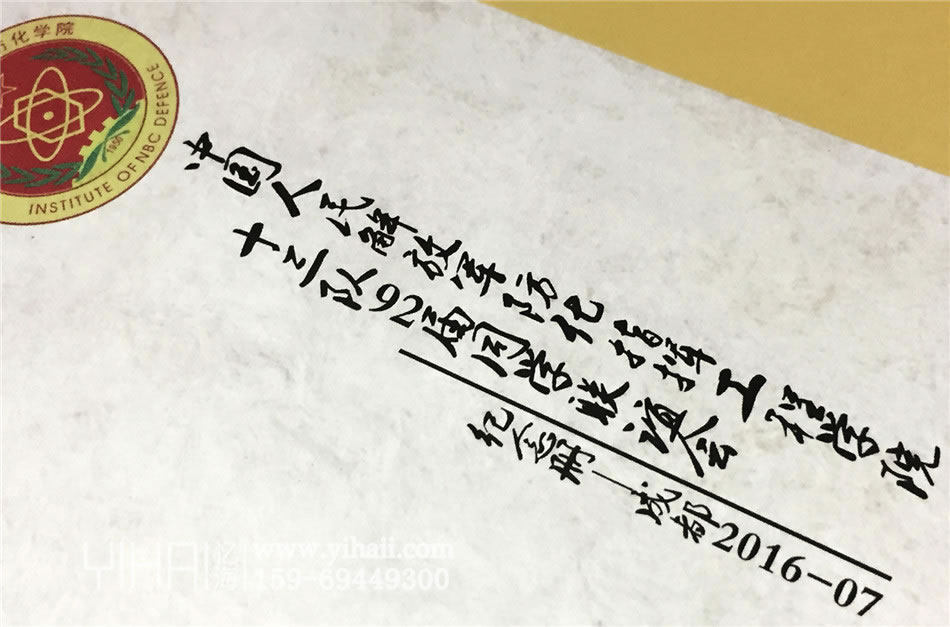 防化学院
INSTITUTE OF NBC DEFENCE
1950
中国人民解放军防化指挥工程学院
十三队92届同学联谊会
纪念册—成都2016-07
YIHAI 忆海
www.yihaii.com
159-69449300